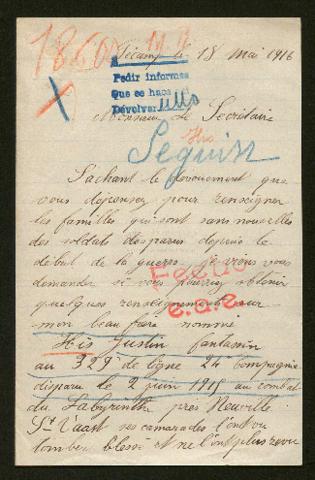 18600
Fécamp le 18 Mai 1916
Pedir informes
Que se haga
Devolver
Monsieur le Secrétaire
His
Seguir
Sachant le dévouement que
vous dépensez pour renseigner
les familles qui sont sans nouvelles
des soldats disparus depuis le
début de la guerre, je viens vous
demander si vous pourriez obtenir
quelques renseignements sur
mon beau frère nommé
His Justin fantassin
au 329e de ligne 24e Compagnie
disparu le 2 juin 1915 au combat
du Labyrinthe près Neuville
St Vaast ses camarades l'ont vu
tomber blessé et ne l'ont plus revu